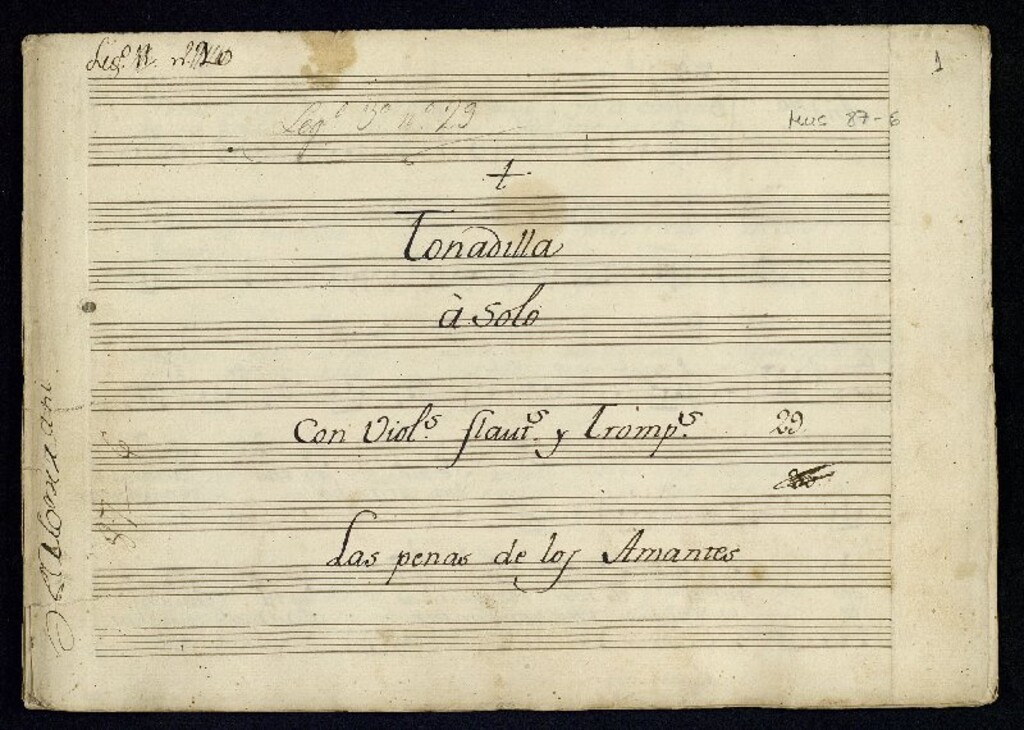 Leg.º 11. n.
1
Leg.º 3º n.º 29
Mus 87-6
Tonadilla
à Solo
Con Viol.s flaut.s y Tromp.s 29
Las penas de los Amantes
87-6